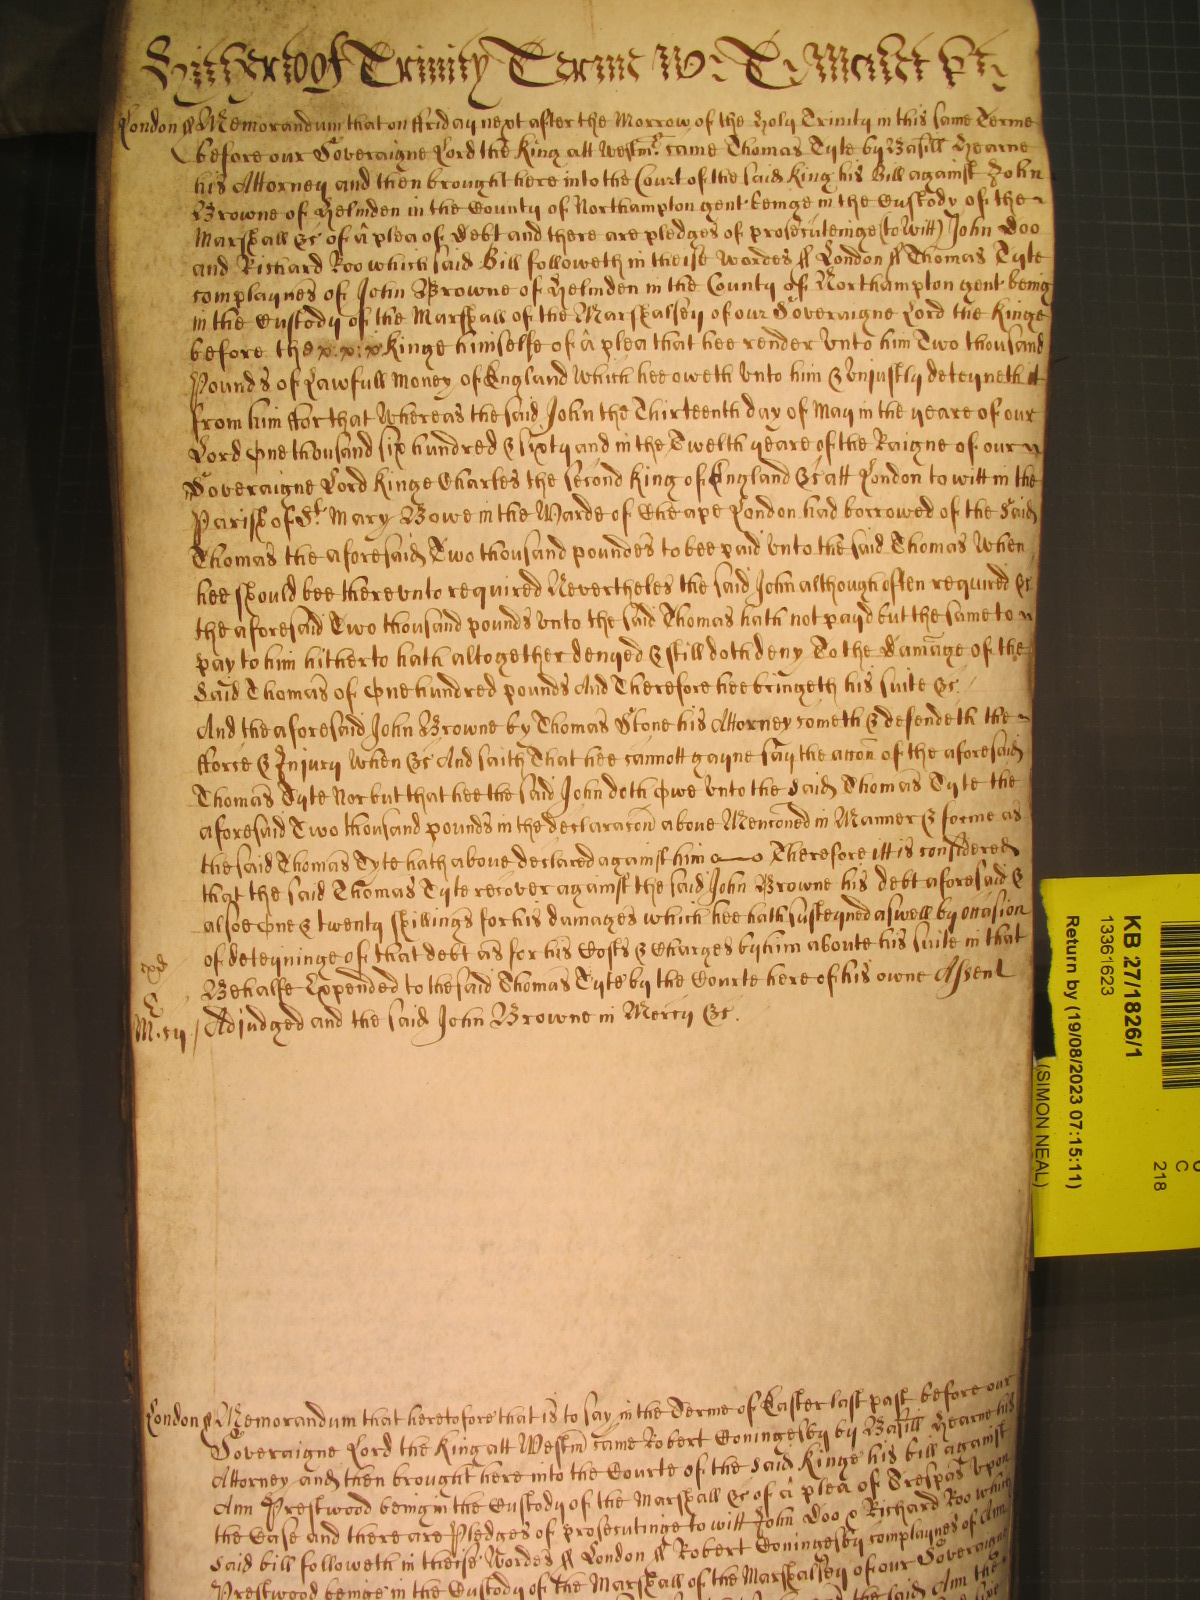 Hitherto of Trinity Terme W: T: Mallet Kt:
London ss Memorandum that on ffriday next after the Morrow of the Holy Trinity in this same Terme
before our Soveraigne Lord the King att Westmr. came Thomas Tyte by Basill Hearne
his Attorney and then brought here into the Court of the said King his Bill against John
Browne of Helmden in the County of Northampton gent beinge in the Custody of the
Marshall &c of a plea of Debt and there are pledges of prosecuteinge (to witt) John Doo
and Richard Roo which said Bill followeth in theise Wordes ss London ss Thomas Tyte
complaynes of John Browne of Helmden in the County of Northampton gent being
in the Custody of the Marshall of the Marshalsey of our Soveraigne Lord the Kinge
before the x:x:x Kinge himselfe of a plea that hee render unto him Two thousand
Pounds of Lawfull Money of England Which hee oweth vnto him & Vnjustly deteyneth it
from him ffor that Whereas the said John the Thirteenth day of May in the yeare of our
Lord One thousand six hundred & sixty and in the Twelth yeare of the Raigne of our
Soveraigne Lord Kinge Charles the second King of England &c att London to witt in the
Parish of St. Mary Bowe in the Warde of Cheape London had borrowed of the Said
Thomas the aforesaid Two thousand poundes to bee paid vnto the said Thomas When
hee should bee therevnto required Nevertheles the said John although often required &c
the aforesaid Two thousand pounds vnto the said Thomas hath not payd but the same to
pay to him hitherto hath altogether denyed & still doth deny To the Damage of the
Said Thomas of One hundred pounds And Therefore hee bringeth his suite &c.
And the aforesaid John Browne by Thomas Stone his Attorney cometh & defendeth the
fforce & Injury When &c And saith That hee cannott gayne say the accon of the aforesaid
Thomas Tyte Nor but that hee the said John doth Owe vnto the Said Thomas Tyte the
aforesaid Two thousand pounds in the declaracon above Menconed in Manner & forme as
the said Thomas Tyte hath above declared against him Therefore itt is considered
that the said Thomas Tyte recover against the said John Browne his debt aforesaid &
alsoe One & twenty shillings for his damages which hee hath susteyned aswell by occasion
of deteyninge of that debt as for his Costs & Charges by him aboute his suite in that
Behalfe Expended to the said Thomas Tyte by the Courte here of his owne Assent
M.cy / Adjudged and the said John Browne in Mercy &c.
London ss Memorandum that heretofore that is to say in the Terme of Easter last past before our
Soveraigne Lord the King att Westm came Robert Coningesby by Basill Hearne his
Attorney and then brought here into the Courte of the said Kinge his bill against
Ann Prestwood being in the Custody of the Marshall &c of a plea of Trespas vpon
the Case and there are Pledges of prosecutinge to witt John Doo & Richard Roo which
said bill followeth in theise Wordes ss London ss Robert Coningesby complaynes of Ann
Prestwood beinge in the Custody of the Marshall of the Marshalsey of our Soveraigne
the said Ann the
KB 27/1826/1
13361623
Return by (19/08/2023 07:15:11)
(SIMON NEAL)
C
218